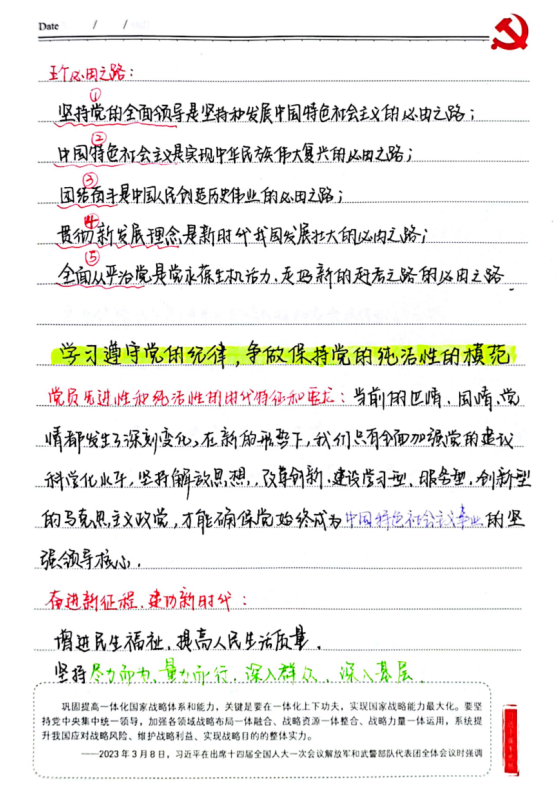 Date / /
五个必由之路：
①
坚持党的全面领导是坚持和发展中国特色社会主义的必由之路；
②
中国特色社会主义是实现中华民族伟大复兴的必由之路；
③
团结奋斗是中国人民创造历史伟业的必由之路；
④
贯彻新发展理念是新时代我国发展壮大的必由之路；
⑤
全面从严治党是党永葆生机活力、走好新的赶考之路的必由之路。
学习遵守党的纪律，争做保持党的纯洁性的模范
党员先进性和纯洁性的时代特征和要求：当前的世情、国情、党
情都发生了深刻变化，在新的形势下，我们只有全面加强党的建设
科学化水平，坚持解放思想，改革创新，建设学习型、服务型、创新型
的马克思主义政党，才能确保党始终成为中国特色社会主义事业的坚
强领导核心。
奋进新征程，建功新时代：
增进民生福祉，提高人民生活质量。
坚持尽力而为、量力而行，深入群众、深入基层。
巩固提高一体化国家战略体系和能力，关键是要在一体化上下功夫，实现国家战略能力最大化。要坚
持党中央集中统一领导，加强各领域战略布局一体融合、战略资源一体整合、战略力量一体运用，系统提
升我国应对战略风险、维护战略利益、实现战略目的的整体实力。
——2023年3月8日，习近平在出席十四届全国人大一次会议解放军和武警部队代表团全体会议时强调